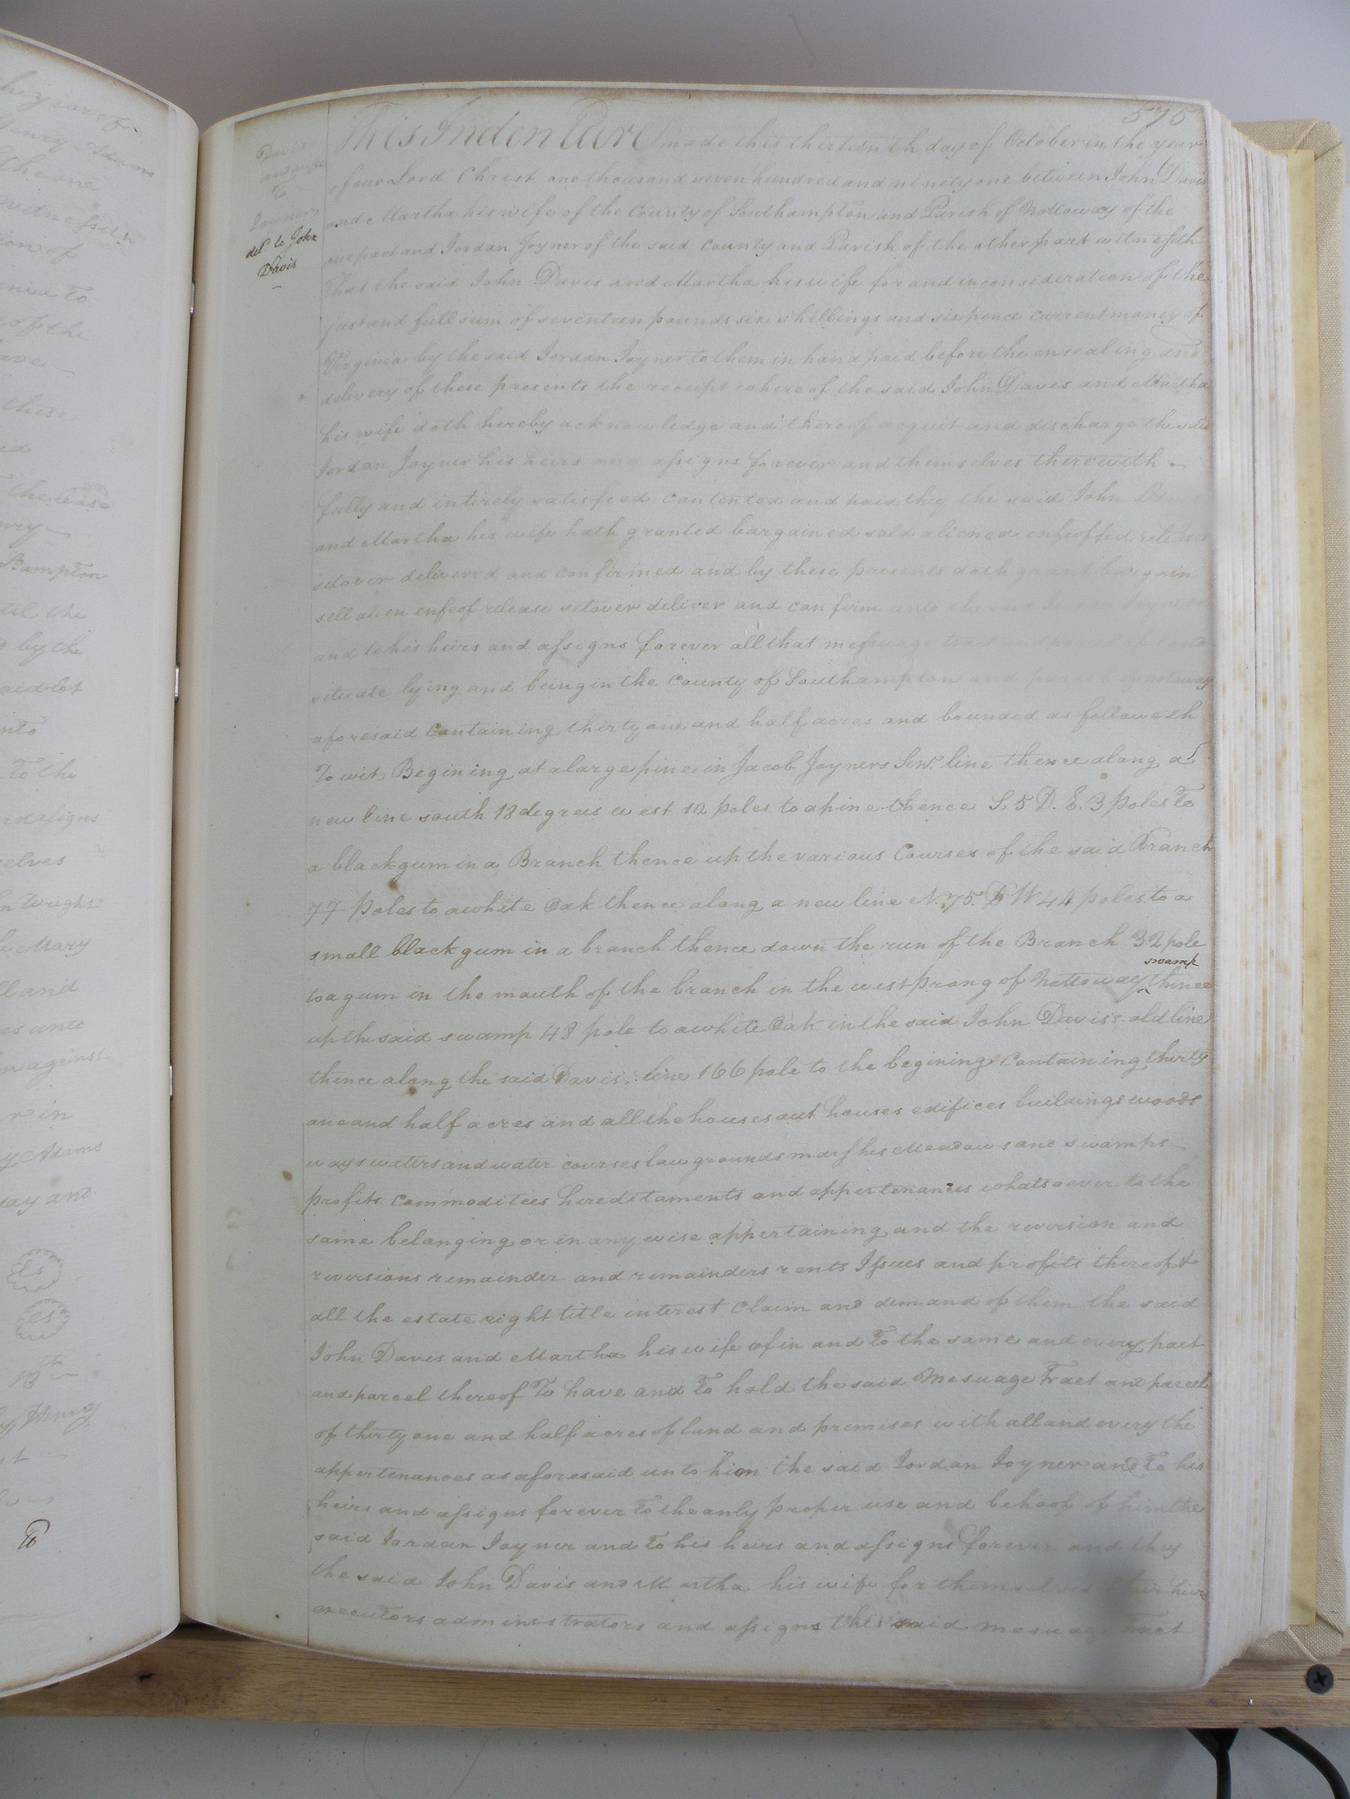 575
Davis
and wife
to
Joyner
deld to John
Davis
This Indenture made this thirteenth day of October in the year
of our Lord Christ one thousand seven hundred and ninety one between John Davis
and Martha his wife of the County of Southampton and Parish of Nottoway of the
one part and Jordan Joyner of the said County and Parish of the other part witnesseth
That the said John Davis and Martha his wife for and in consideration of the
just and full sum of seventeen pounds six shillings and six pence current money of
Virginia by the said Jordan Joyner to them in hand paid before the ensealing and
delivery of these presents the receipt whereof the said John Davis and Martha
his wife doth hereby acknowledge and thereof acquit and discharge the said
Jordan Joyner his heirs and assigns forever and themselves therewith
fully and intirely satisfied contented and paid they the said John Davis
and Martha his wife hath granted bargained sold aliened enfeoffed released
setover delivered and confirmed and by these presents doth grant bargain
sell alien enfeof release setover deliver and confirm unto the said Jordan Joyner
and to his heirs and assigns forever all that messuage tract and parcel of land
situate lying and being in the County of Southampton and parish Nottoway
aforesaid Containing thirty one and half acres and bounded as followeth
To wit Begining at a large pine in Jacob Joyners Senr line thence along a
new line south 18 degrees west 12 poles to a pine thence S. 5 D. E. 3 poles To
a black gum in a Branch thence up the various Courses of the said Branch
77 poles to a white Oak thence along a new line N. 75. D W 44 poles to a
small black gum in a branch thence down the run of the Branch 32 pole
to a gum in the mouth of the branch in the west prong of Nottoway swamp thence
up the said swamp 48 pole to a white Oak in the said John Davis's old line
thence along the said Davis's line 166 pole to the begining Containing thirty
one and half acres and all the houses out houses edifices buildings woods
ways waters and water courses low grounds marshes Meadows and swamps
profits Commodities hereditaments and appertenances whatsoever to the
same belonging or in any wise appertaining and the reversion and
reversions remainder and remainders rents Issues and profits thereof &
all the estate right title interest Claim and demand of them the said
John Davis and Martha his wife of in and To the same and every part
and parcel thereof To have and To hold the said Mesuage Tract and parcel
of thirty one and half acres of land and premises with all and every the
appertenances as aforesaid unto him the said Jordan Joyner and To his
heirs and assigns forever To the only proper use and behoof of him the
said Jordan Joyner and To his heirs and assigns forever and they
the said John Davis and Martha his wife for themselves their heirs
executors administrators and assigns the said mesuage Tract